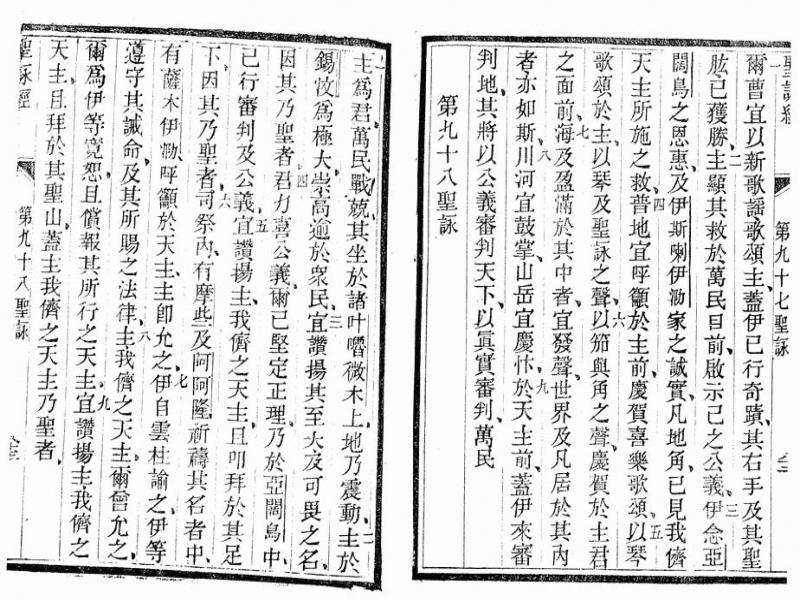 聖詠經
第九十七聖詠
爾曹宜以新歌謠歌頌主、蓋伊已行奇蹟、其右手及其聖
肱已獲勝、二主顯其救於萬民目前、啟示己之公義、三伊念亞
闊烏之恩惠、及伊斯喇伊泐家之誠實、凡地角、已見我儕
天主所施之救、四普地宜呼籲於主前、慶賀喜樂歌頌、五以琴
歌頌於主、以琴及聖詠之聲、六以笳與角之聲、慶賀於主君
之面前、七海及盈滿於其中者、宜發聲、世界及凡居於其內
者亦如斯、八川河宜鼓掌、山岳宜慶忭、九於天主前、蓋伊來審
判地、其將以公義審判天下、以眞實審判萬民
第九十八聖詠
主爲君、萬民戰兢、其坐於諸叶嚕微木上、地乃震動、二主於
錫忟爲極大、崇高逾於衆民、三宜讚揚其至大及可畏之名、
因其乃聖者、四君力喜公義、爾已堅定正理、乃於亞闊烏中、
己行審判及公義、五宜讚揚主我儕之天主、且叩拜於其足
下、因其乃聖者、六司祭內、有摩些及阿阿隆、祈禱其名者中、
有薩木伊泐、呼籲於天主、主卽允之、七伊自雲柱諭之、伊等
遵守其誡命、及其所賜之法律、八主我儕之天主、爾曾允之、
爾爲伊等寬恕、且償報其所行之天主、九宜讚揚主我儕之
天主、且拜於其聖山、蓋主我儕之天主乃聖者、
聖詠經
第九十八聖詠